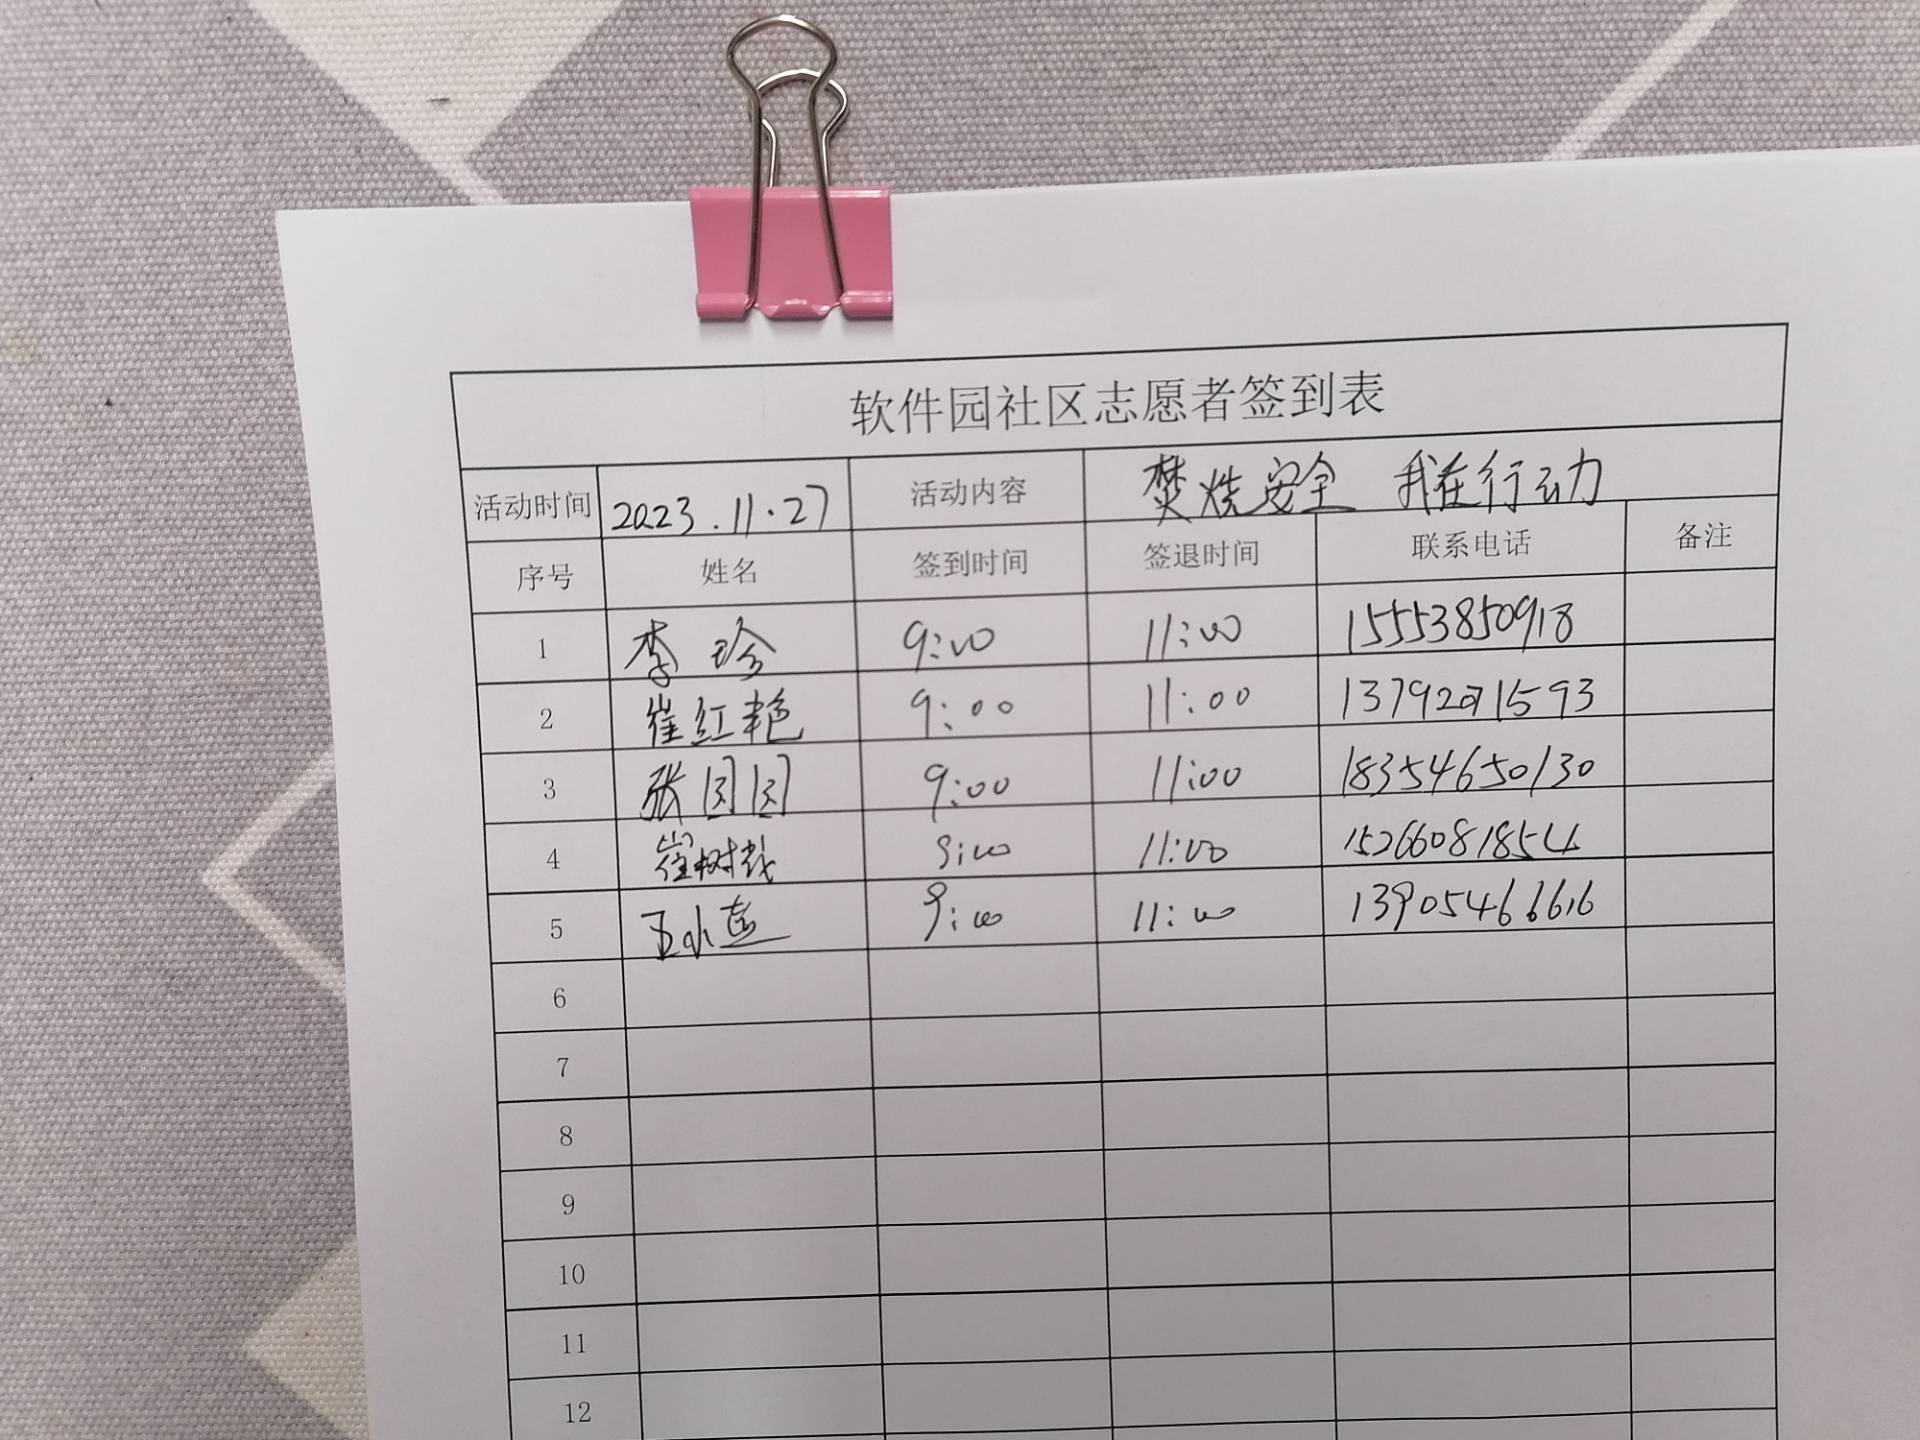 软件园社区志愿者签到表
活动时间 2023.11.27 活动内容 焚烧安全 我在行动
序号 姓名 签到时间 签退时间 联系电话 备注
1 李珍 9:00 11:00 15553850918
2 崔红艳 9:00 11:00 13792071593
3 张园园 9:00 11:00 18354650130
4 崔树 9:00 11:00 15266081854
5 9:00 11:00 13905466616
6
7
8
9
10
11
12